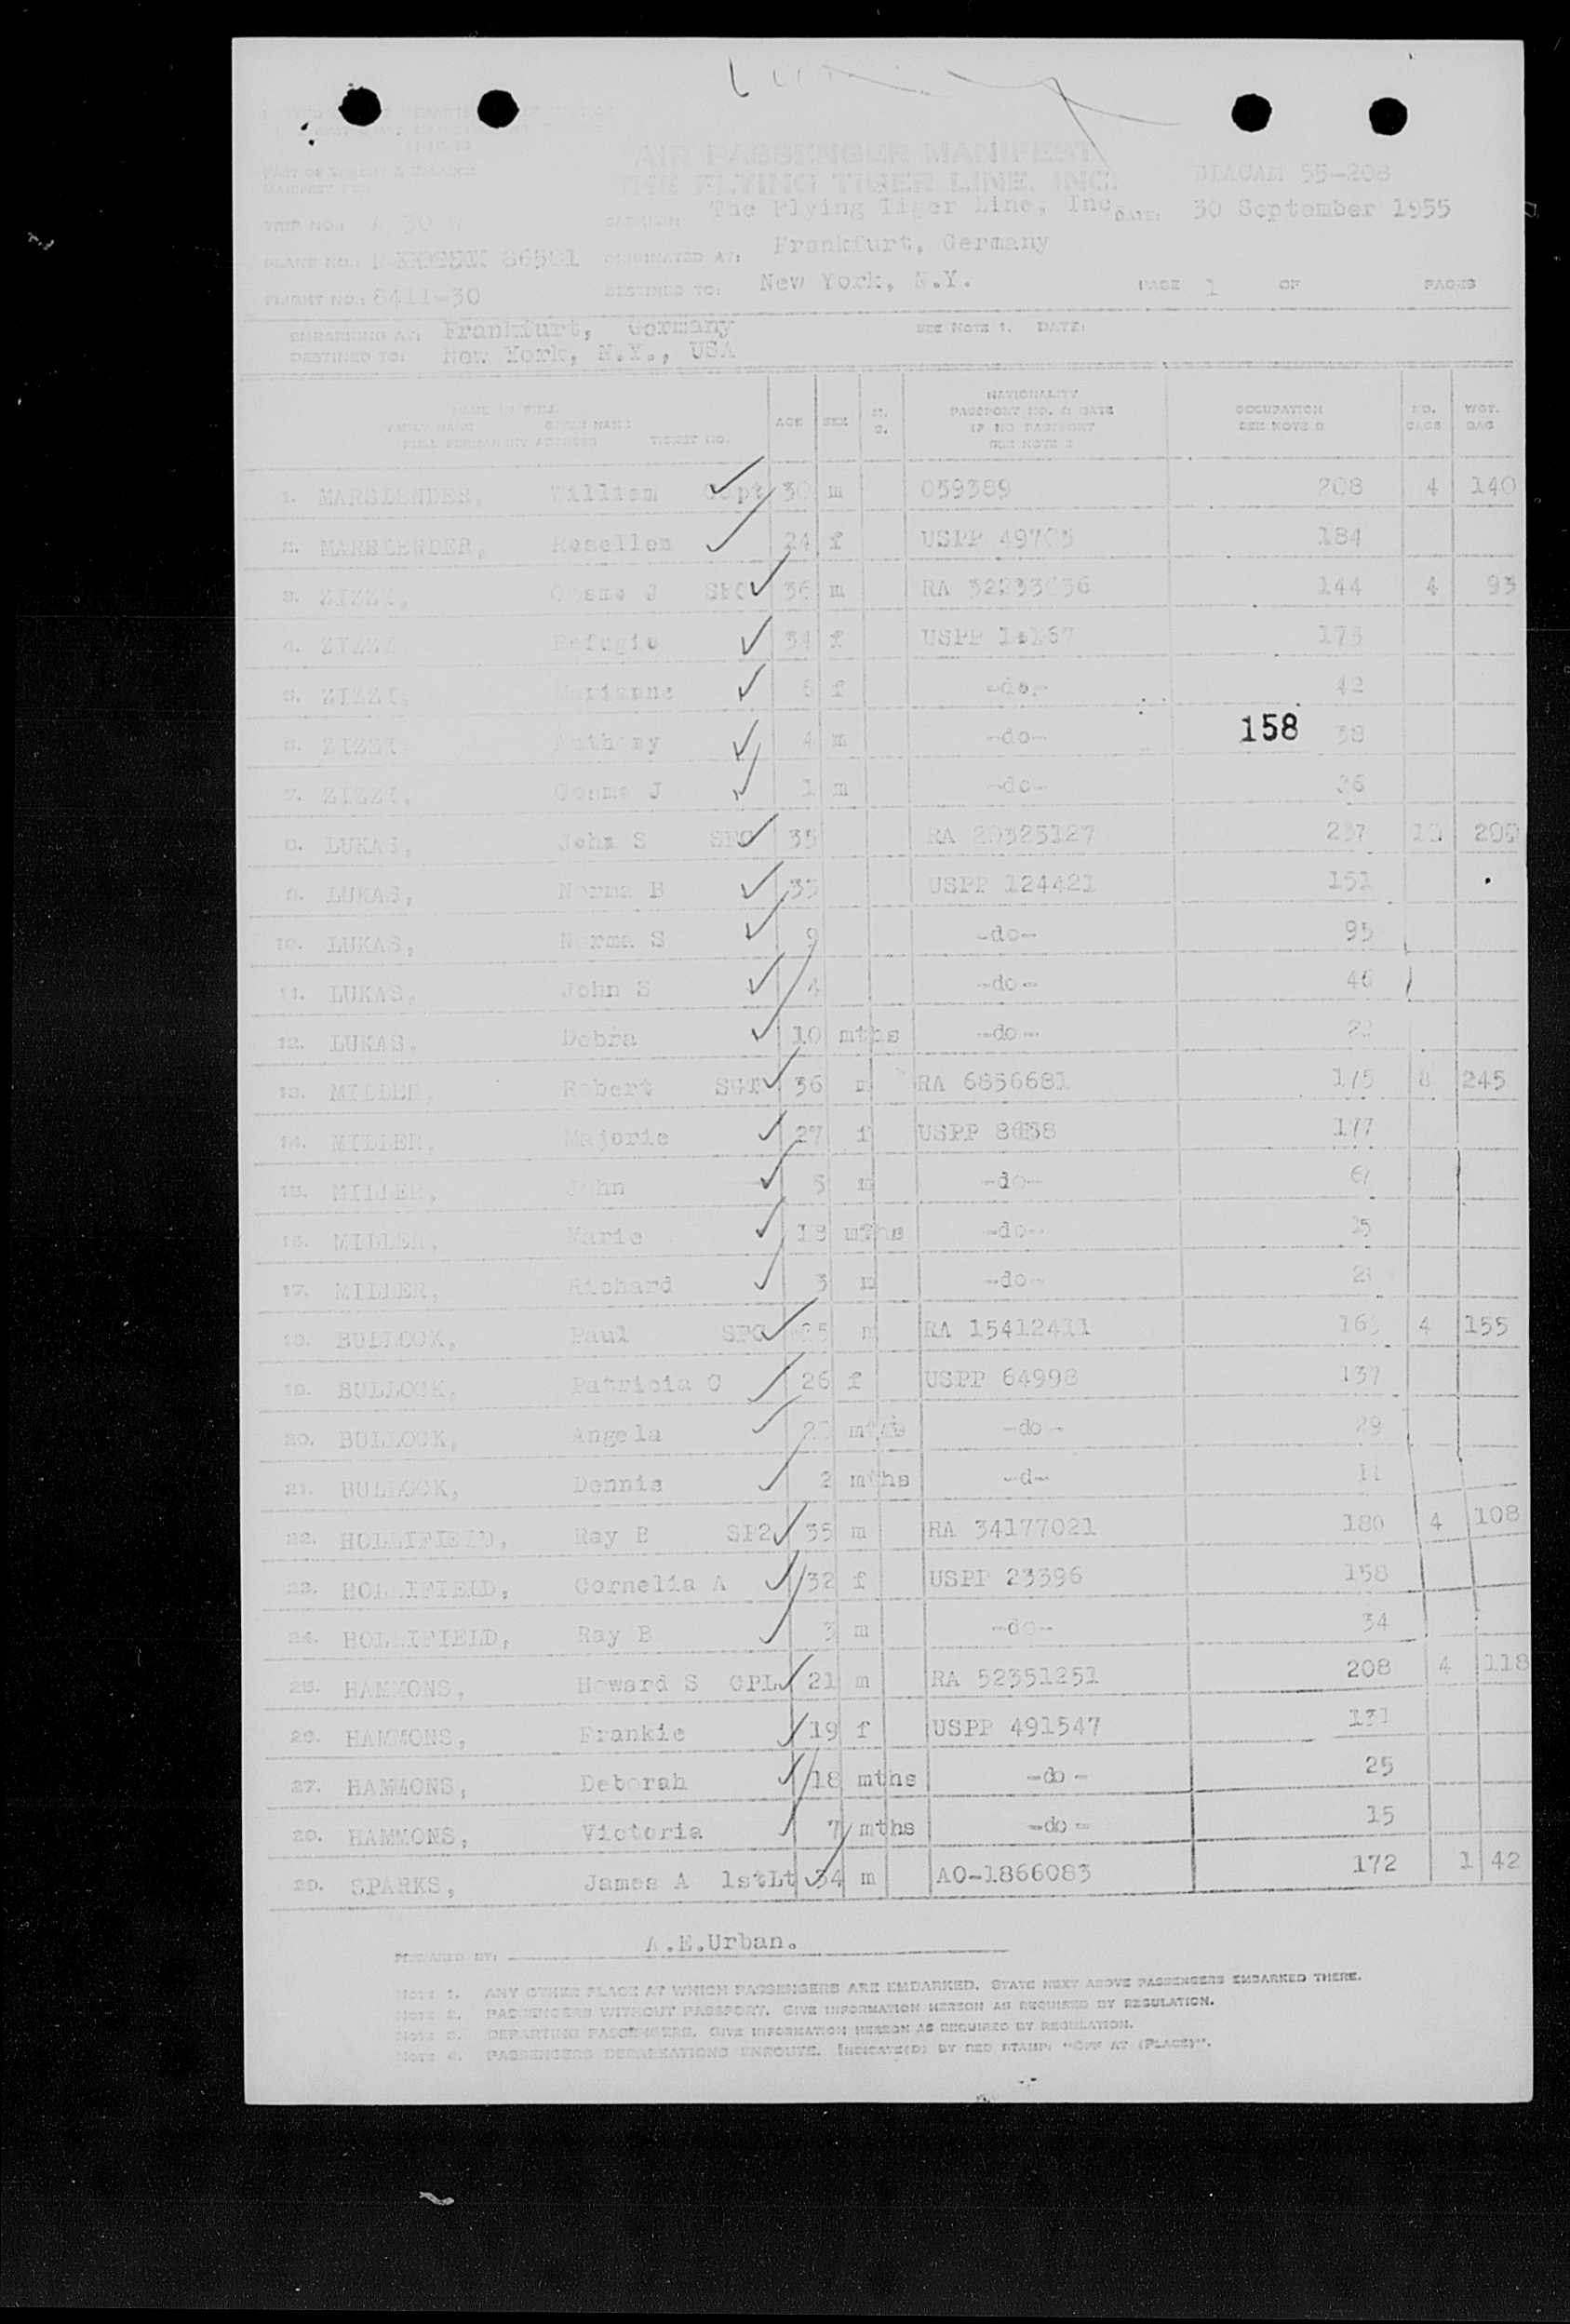 AIR PASSENGER MANIFEST
THE FLYING TIGER LINE, INC.
DIACAM 55-208
TRIP NO.: CARRIER: The Flying Tiger Line, Inc. DATE: 30 September 1955
PLANE NO.: 86521 ORIGINATED AT: Frankfurt, Germany
FLIGHT NO.: 8411-30 DESTINED TO: New York, N.Y. PAGE 1 OF PAGES
EMBARKING AT: Frankfurt, Germany SEE NOTE 1. DATE:
DESTINED TO: New York, N.Y., USA
NAME IN FULL
FAMILY NAME GIVEN NAME
FULL PERMANENT ADDRESS TICKET NO.
AGE SEX
NATIONALITY
PASSPORT NO. & DATE
IF NO PASSPORT
SEE NOTE 2
OCCUPATION
SEE NOTE 3
NO. BAGS
WGT. BAG
1. William Capt 30 m 059389 208 4 140
2. 24 f USPP 184
3. ZIZZI, J SFC 36 m RA 144 4 93
4. ZIZZI Refugio 34 f USPP
5. ZIZZI, Marianne f -do- 42
158
6. ZIZZI Anthony 4 m -do- 38
7. ZIZZI, J 1 m -do-
8. LUKAS, John S SFC 35 RA 20325127 237 10 200
9. LUKAS, Norma B 33 USPP 124421 151
10. LUKAS, Norma S 9 -do- 95
11. LUKAS, John S 4 -do- 46
12. LUKAS, Debra 10 mths -do- 22
13. MILLER, Robert SGT 36 m RA 6856681 175 8 245
14. MILLER, Majorie 27 f USPP 177
15. MILLER, John 5 m -do-
16. MILLER, Marie 18 mths -do-
17. MILLER, Richard 3 m -do-
18. BULLOCK, Paul SFC m RA 15412411 4 155
19. BULLOCK, Patricia C 26 f USPP 64998 137
20. BULLOCK, Angela mths -do- 29
21. BULLOCK, Dennis 2 mths -d- 11
22. HOLLIFIELD, Ray B SP2 35 m RA 34177021 180 4 108
23. HOLLIFIELD, Cornelia A 32 f USPP 23396 158
24. HOLLIFIELD, Ray B 3 m -do- 34
25. HAMMONS, Howard S CPL 21 m RA 52351251 208 4 118
26. HAMMONS, Frankie 19 f USPP 491547 131
27. HAMMONS, Deborah 18 mths -do- 25
28. HAMMONS, Victoria 7 mths -do- 15
29. SPARKS, James A 1stLt 34 m AO-1866083 172 1 42
PREPARED BY: A.E.Urban.
NOTE 1. ANY OTHER PLACE AT WHICH PASSENGERS ARE EMBARKED. STATE NEXT ABOVE PASSENGERS EMBARKED THERE.
NOTE 2. PASSENGERS WITHOUT PASSPORT. GIVE INFORMATION HEREON AS REQUIRED BY REGULATION.
NOTE 3. DEPARTING PASSENGERS. GIVE INFORMATION HEREON AS REQUIRED BY REGULATION.
NOTE 4. PASSENGERS DEBARKATIONS ENROUTE. INDICATE(D) BY RED STAMP: "OFF AT (PLACE)".